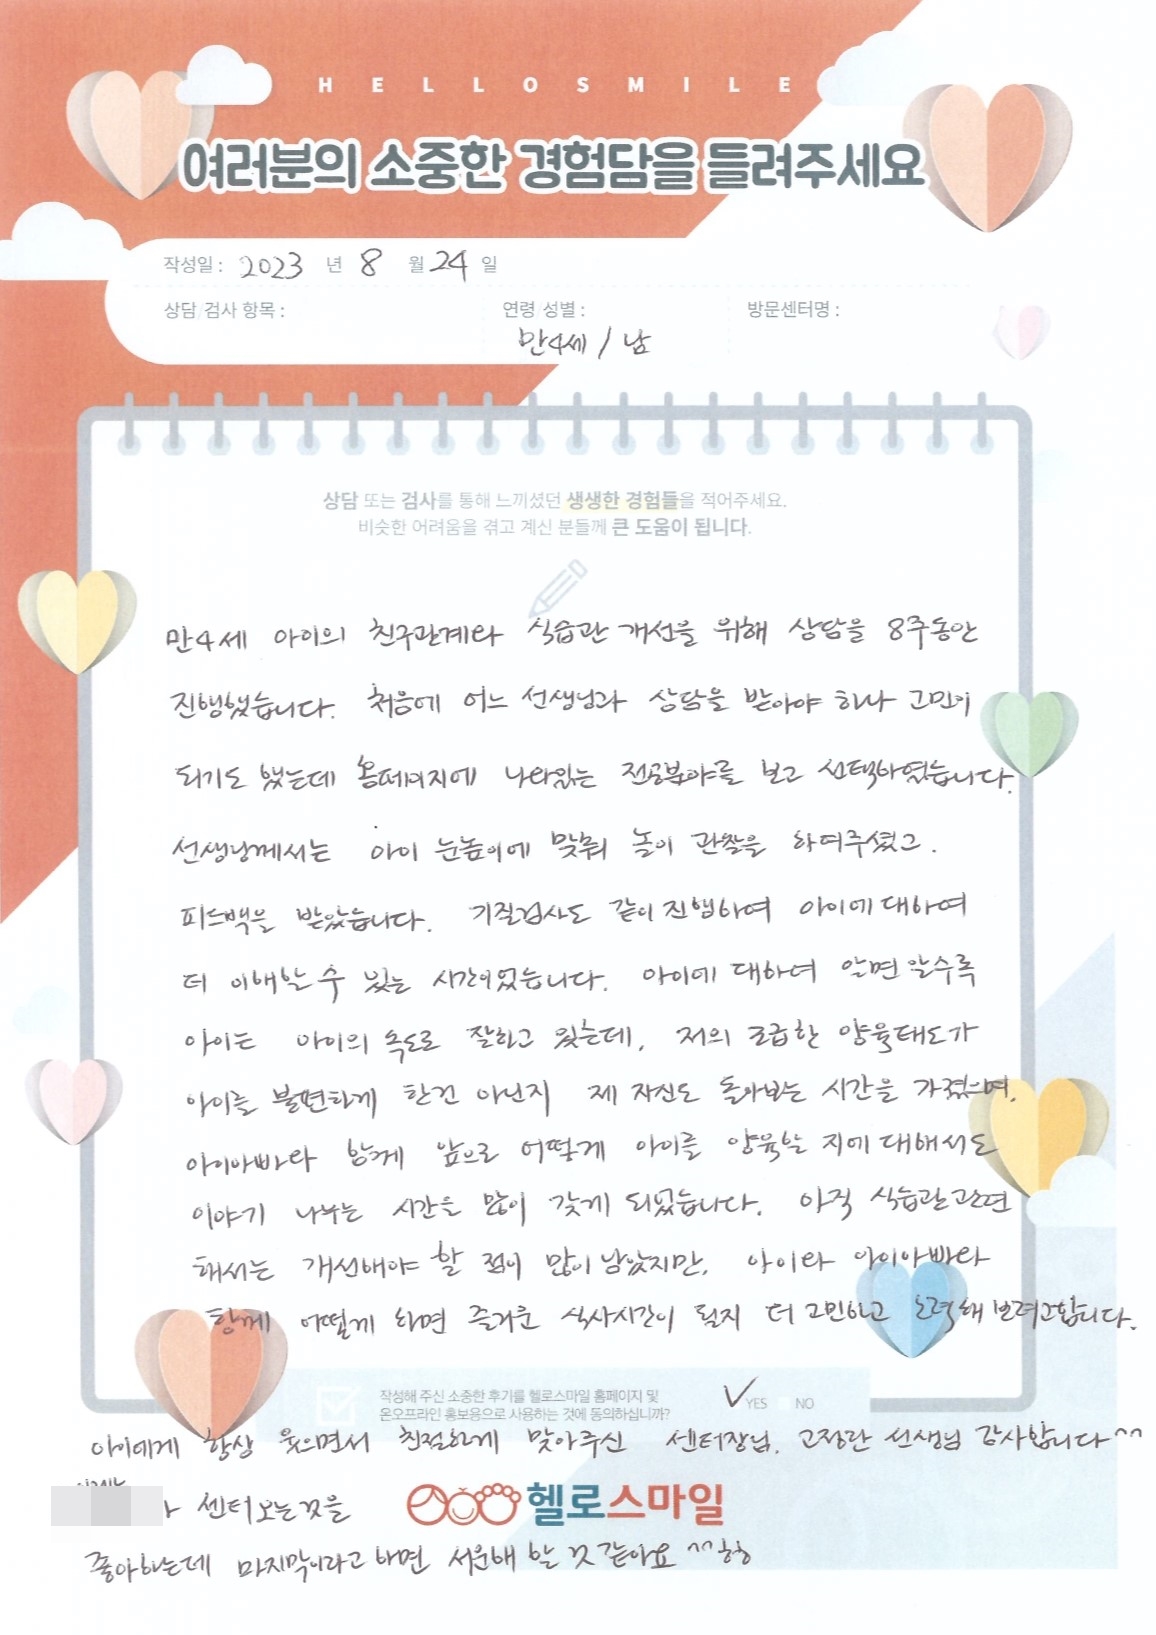 HELLOSMILE
여러분의 소중한 경험담을 들려주세요
작성일 : 2023 년 8 월 24 일
상담/검사 항목 : 연령/성별 : 방문센터명 :
만4세 / 남
상담 또는 검사를 통해 느끼셨던 생생한 경험들을 적어주세요.
비슷한 어려움을 겪고 계신 분들께 큰 도움이 됩니다.
만4세 아이의 친구관계라 식습관 개선을 위해 상담을 8주동안
진행했습니다. 처음에 어느 선생님과 상담을 받아야 하나 고민이
되기도 했는데 홈페이지에 나와있는 전공분야를 보고 선택하였습니다.
선생님께서는 아이 눈높이에 맞춰 놀이 관찰을 하여주셨고.
피드백을 받았습니다. 기질검사도 같이 진행하여 아이에 대하여
더 이해할 수 있는 시간이었습니다. 아이에 대하여 알면 알수록
아이는 아이의 속도로 잘하고 있는데, 저의 조급한 양육태도가
아이를 불편하게 한건 아닌지 제 자신도 돌아보는 시간을 가졌으며,
아이아빠와 함께 앞으로 어떻게 아이를 양육할 지에 대해서도
이야기 나누는 시간을 많이 갖게 되었습니다. 아직 식습관 관련
해서는 개선해야 할 점이 많이 남았지만, 아이와 아이아빠와
함께 어떻게 하면 즐거운 식사시간이 될지 더 고민하고 노력해 보려고합니다.
작성해 주신 소중한 후기를 헬로스마일 홈페이지 및
온오프라인 홍보용으로 사용하는 것에 동의하십니까? ✓YES NO
아이에게 항상 웃으면서 친절하게 맞아주신 센터장님, 고장란 선생님 감사합니다^^
센터 오는 것을
헬로스마일
좋아하는데 마지막이라고 하면 서운해 할 것 같아요 ^^ 힝